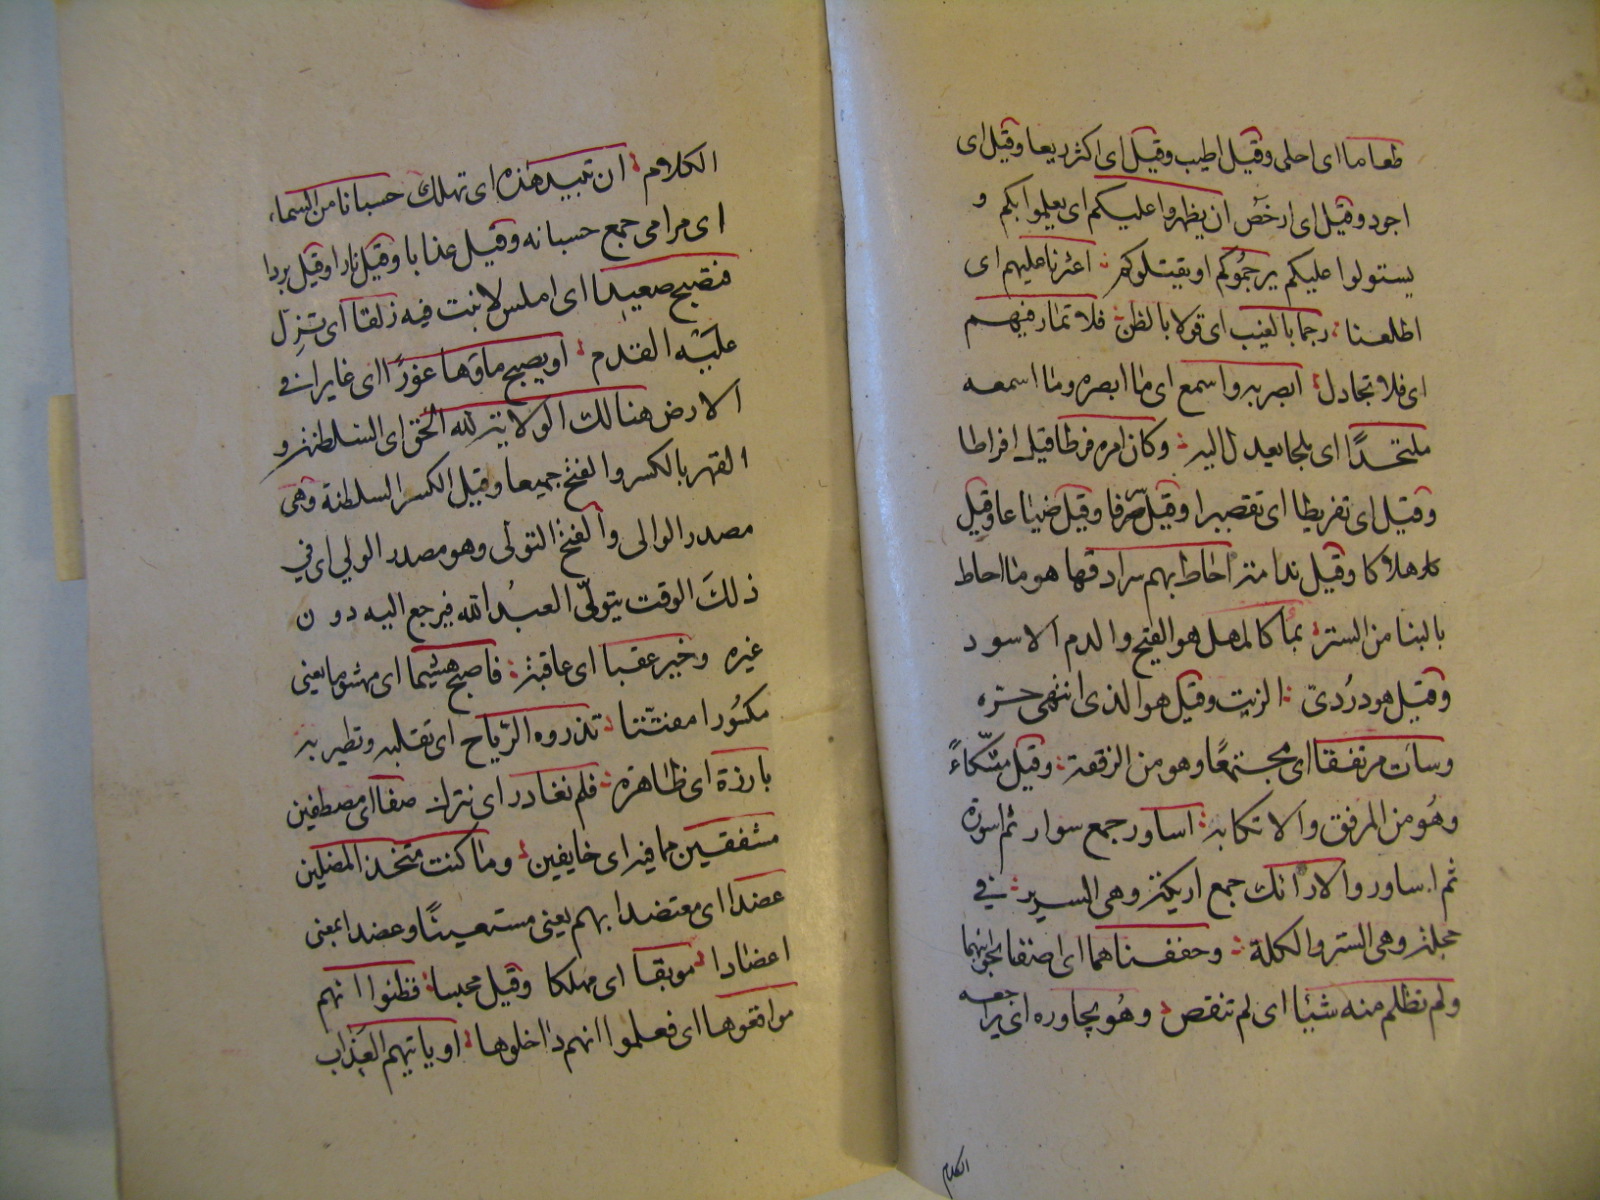 طعاما اى احلى وقيل اطيب وقيل اى اكثر ريعا وقيل اى
اجود وقيل اى ارخص ان يظهروا عليكم اى يعلموا بكم و
يستولوا عليكم يرجموكم او يقتلوكم اعثرنا عليهم اى
اطلعنا رجما بالغيب اى قولا بالظن فلا تمار فيهم
اى فلا تجادل ابصر به واسمع اى ما ابصره وما اسمعه
ملتحدًا اى ملجا يعدل اليه وكان امره فرطا قيل افراطا
وقيل اى تفريطا اى تقصيرا وقيل سرفا وقيل ضياعا وقيل
هلاكا وقيل ندامة احاط بهم سرادقها هو ما احاط
بالبنا من الستر بمآ كالمهل هو القيح والدم الاسود
وقيل هو دُردىّ الزيت وقيل هو الذى انتهى حره
وساءت مرتفقا اى مجتمعًا وهو من الرفقة وقيل متّكاءً
وهُو من المرفق والاتكا به اساور جمع سوار ثم اسورة
ثم اساور والارائك جمع اريكة وهى السرير فى
حجلة وهى الستر والكلة وحففناهما اى اضفنا بجوانبهما
ولم تظلم منه شيئا اى لم تنقص وهُو يحاوره اى يراجعه
الكلام
الكلام ان تبيد هذه اى تهلك حسبانا من السماء
اى مرامى جمع حسبانه وقيل عذابا وقيل نارا وقيل بردا
فتصبح صعيدا اى املس لا نبت فيه زلقا اى تزل
عليه القدم او يصبح ماوها غورًا اى غايرا فى
الارض هنالك الولاية لله الحق اى السلطنة و
القهر بالكسر والفتح جميعا وقيل الكسر السلطنة وهى
مصدر الوالى والفتح التولى وهو مصدر الولي اى فى
ذلكَ الوقت يتولّى العبدُ الله فيرجع اليه دون
غيره وخير عقبا اى عاقبة فاصبح هشيما اى مهشوما يعنى
مكسُورا مفتّتا تذروه الرّياح اى تقلبه وتطير به
بارزة اى ظاهرة فلم نغادر اى نترك صفا اى مصطفين
مشفقين مما فيه اى خايفين وما كنت متخذ المضلين
عضدا اى معتضدا بهم يعنى مستعينًا وعضدا بمعنى
اعضادا موبقا اى مهلكا وقيل محبسا فظنوا انهم
مواقعوها اى فعلموا انهم داخلوها او ياتيهم العذاب